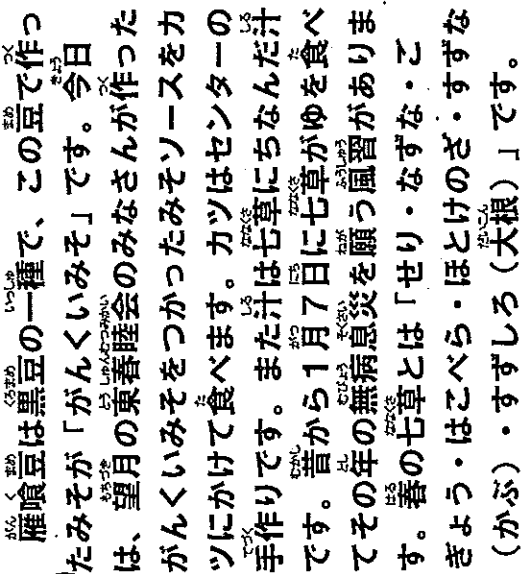 雁喰豆は黒豆の一種で、この豆で作っ
たみそが「がんくいみそ」です。今日
は、望月の東春睦会のみなさんが作った
がんくいみそをつかったみそソースをカ
ツにかけて食べます。カツはセンターの
手作りです。また汁は七草にちなんだ汁
です。昔から1月7日に七草がゆを食べ
てその年の無病息災を願う風習がありま
す。春の七草とは「せり・なずな・ご
ぎょう・はこべら・ほとけのざ・すずな
(かぶ)・すずしろ(大根)」です。